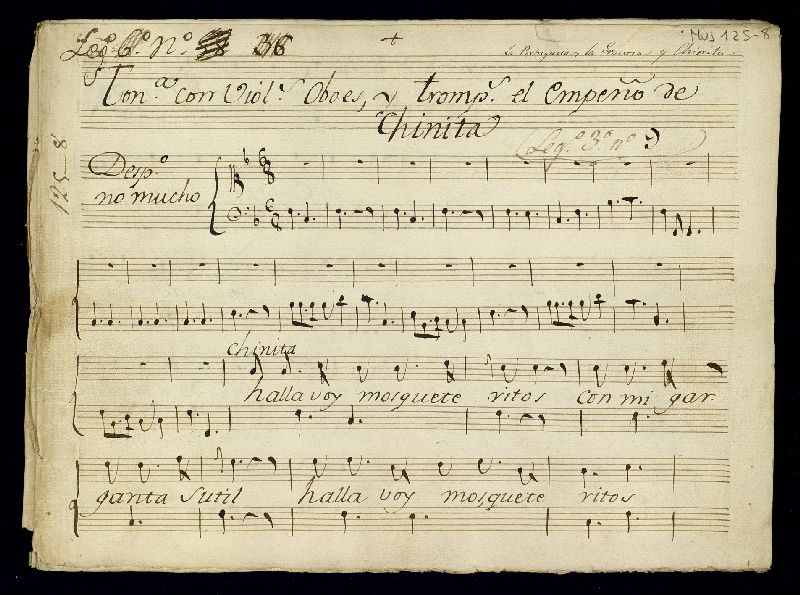 Leg.º 6.º N.º 36
Mus 125-8
La Portuguesa y la Graciosa y Chinita.
Ton.ª con Viol.s Oboes, y tromp.s el Empeño de
Chinita
Leg.º 3.º nº 9
125-8
Desp.º
no mucho
chinita
halla voy mosquete ritos con mi gar
ganta sutil halla voy mosquete ritos